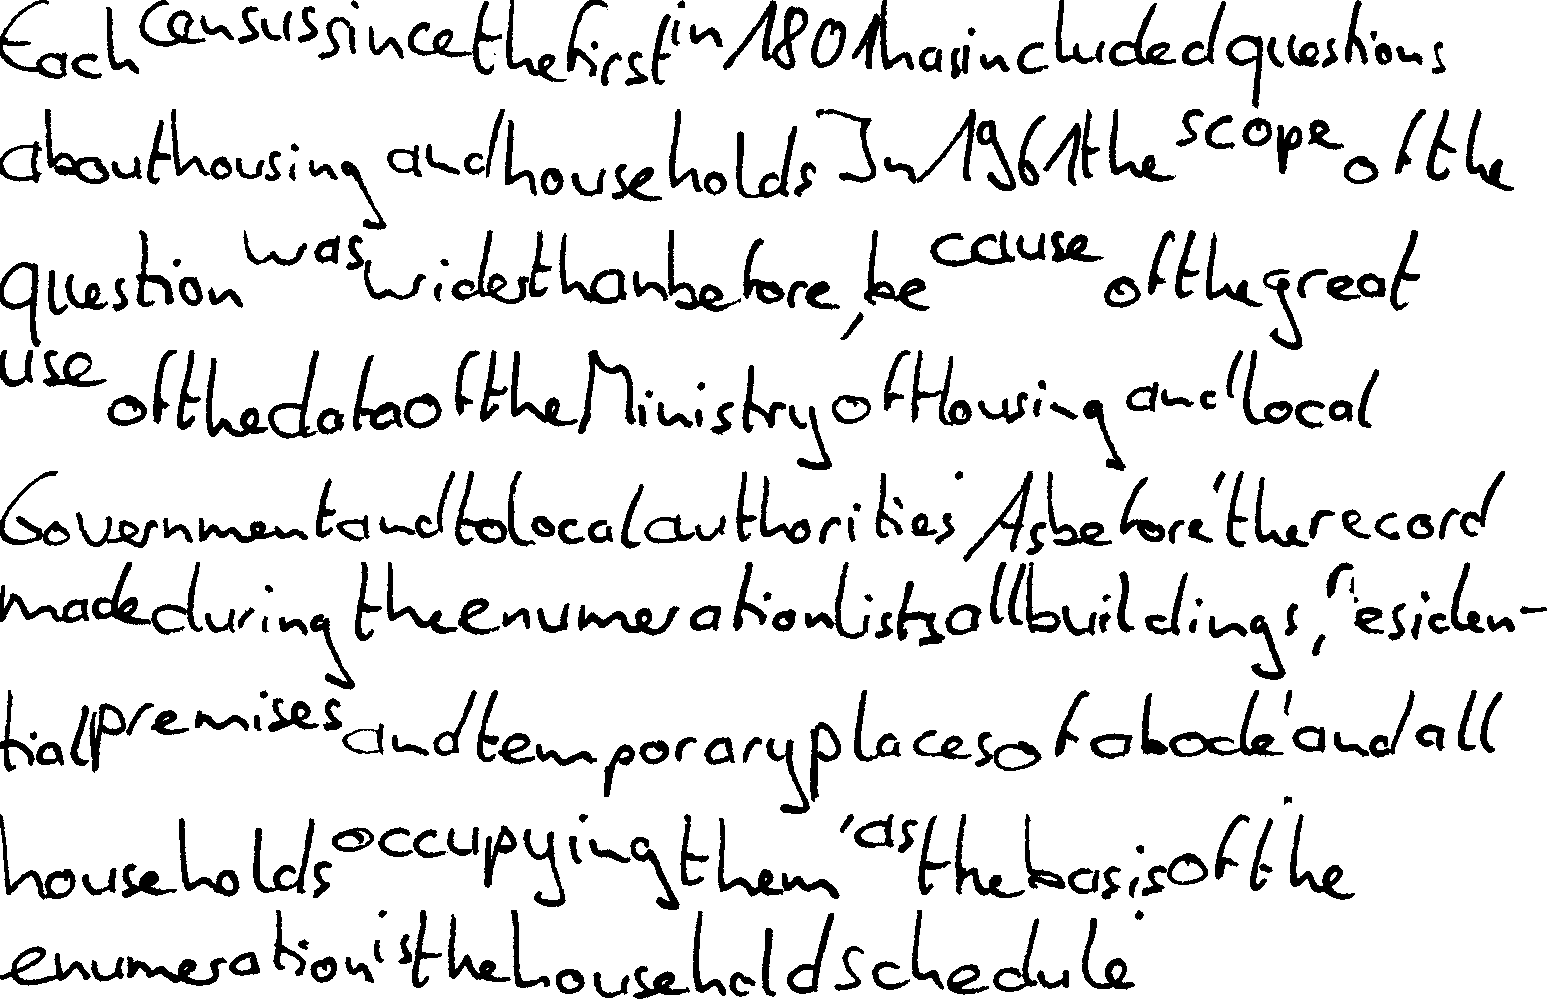 Each census since the first in 1801 has included questions
about housing and households. In 1961 the scope of the
question was wider than before, because of the great
use of the data of the Ministry of Housing and local
Government and to local authorities. As before, the record
made during the enumeration lists all buildings, residen-
tial premises and temporary places of abode, and all
households occupying them, as the basis of the
enumeration is the household schedule.